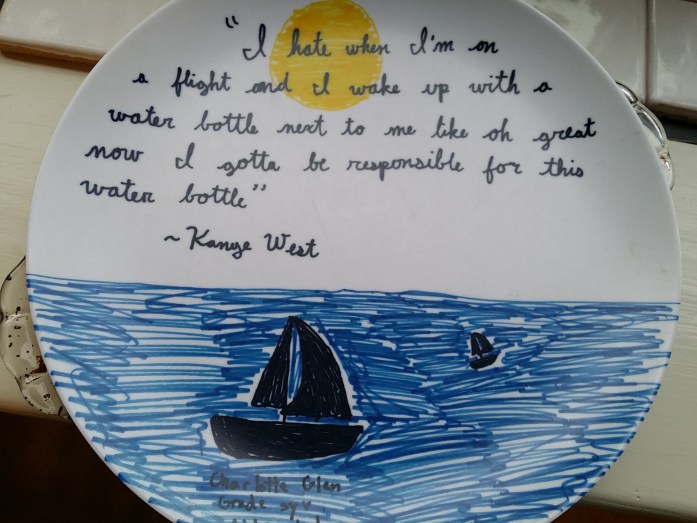 “I hate when I'm on
a flight and I wake up with a
water bottle next to me like oh great
now I gotta be responsible for this
water bottle”
~ Kanye West
Charlotte Glen
Grade